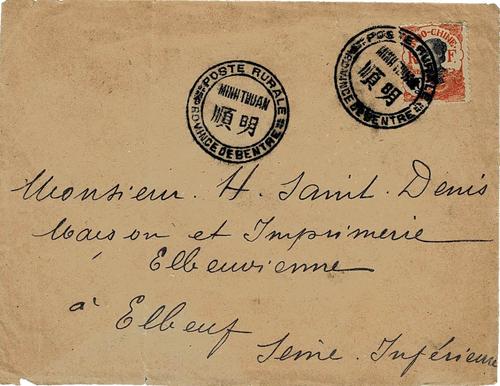 POSTE RURALE
MINH THUAN
順明
PROVINCE DE BENTRE
POSTE RURALE
MINH THUAN
順明
PROVINCE DE BENTRE
INDO-CHINE
R F.
Monsieur H. Saint. Denis
Maison et Imprimerie
Elbeuvienne
à Elbeuf
Seine. Inférieure